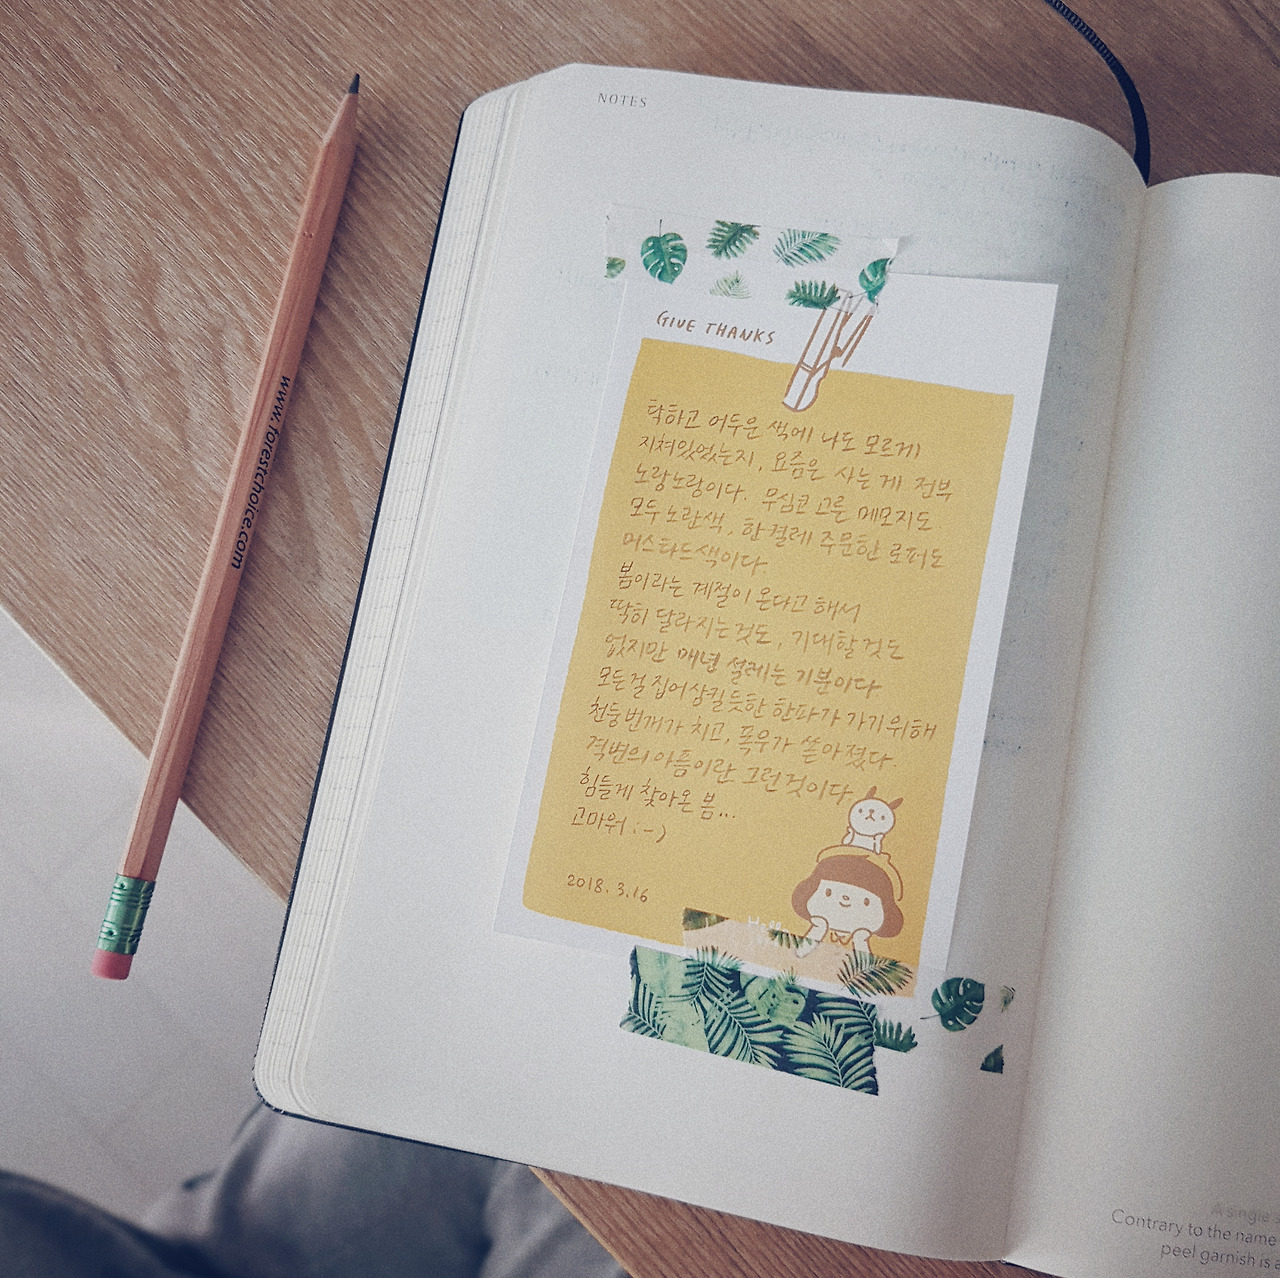 NOTES
GIVE THANKS
탁하고 어두운 색에 나도 모르게
지쳐있었는지, 요즘은 사는 게 전부
노랑노랑이다. 무심코 고른 메모지도
모두 노란색, 한 켤레 주문한 로퍼도
머스타드색이다
봄이라는 계절이 온다고 해서
딱히 달라지는것도, 기대할것도
없지만 매년 설레는 기분이다
모든걸 집어삼킬듯한 한파가 가기위해
천둥번개가 치고, 폭우가 쏟아졌다.
격변의 아픔이란 그런것이다
힘들게 찾아온 봄...
고마워 :-)
2018. 3.16
www.forestchoice.com
A single
Contrary to the name
peel garnish is a